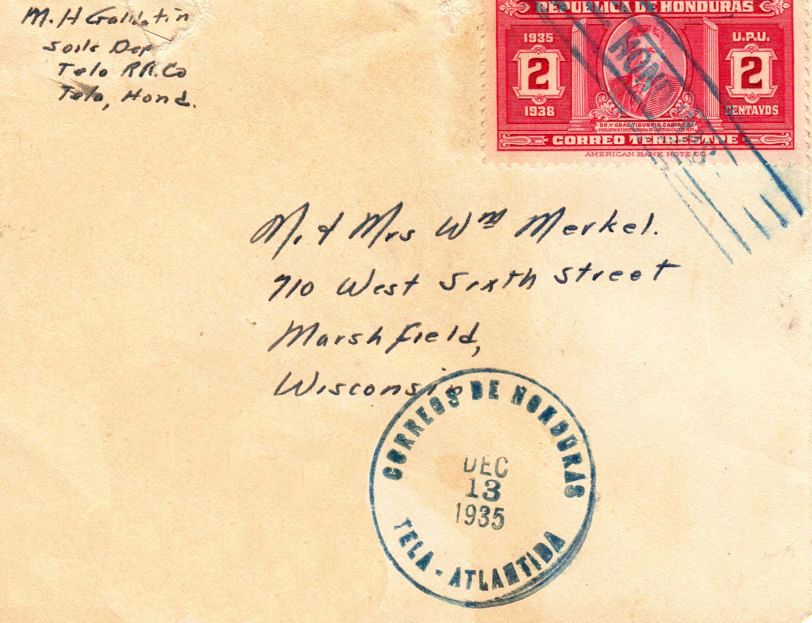 M. H Gallatin
Soils Dep
Tela RR. Co
Tela, Hond.
REPUBLICA DE HONDURAS
1935
U.P.U.
2
2
1938
CENTAVOS
CORREO TERRESTRE
AMERICAN BANK NOTE CO.
M. & Mrs Wm Merkel.
710 West Sixth Street
Marshfield,
Wisconsin
CORREOS DE HONDURAS
DEC
13
1935
TELA - ATLANTIDA